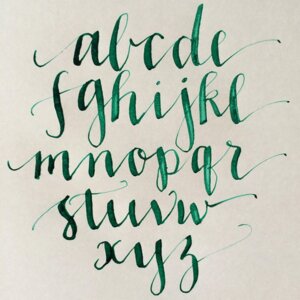 abcde
fghijkl
mnopqr
stuvw
xyz